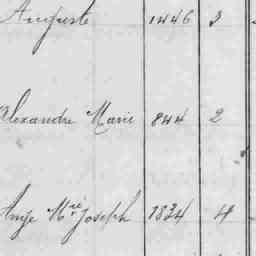 Auguste 1446 3
Alexandre Marie 844 2
Ange Mie Joseph 1834 4